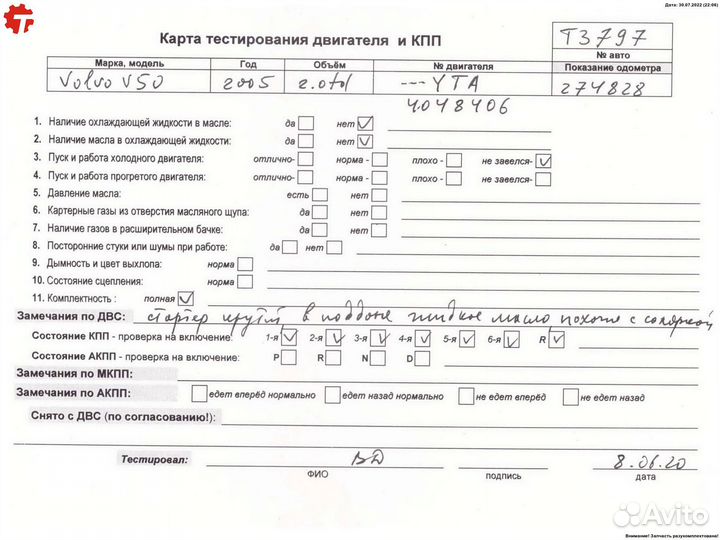 Дата: 30.07.2022 (22:06)
Карта тестирования двигателя и КПП
T3797
№ авто
Марка, модель Год Объём № двигателя Показание одометра
Volvo V50 2005 2.0td ---YTA 274828
4048406
1. Наличие охлаждающей жидкости в масле: да нет
2. Наличие масла в охлаждающей жидкости: да нет
3. Пуск и работа холодного двигателя: отлично- норма - плохо - не завелся-
4. Пуск и работа прогретого двигателя: отлично- норма - плохо - не завелся-
5. Давление масла: есть нет
6. Картерные газы из отверстия масляного щупа: да нет
7. Наличие газов в расширительном бачке: да нет
8. Посторонние стуки или шумы при работе: да нет
9. Дымность и цвет выхлопа: норма
10. Состояние сцепления: норма
11. Комплектность : полная
Замечания по ДВС: стартер крутит, в поддоне жидкое масло, похоже с соляркой
Состояние КПП - проверка на включение: 1-я 2-я 3-я 4-я 5-я 6-я R
Состояние АКПП - проверка на включение: P R N D
Замечания по МКПП:
Замечания по АКПП: едет вперёд нормально едет назад нормально не едет вперёд не едет назад
Снято с ДВС (по согласованию!):
Тестировал: ВД 8.06.20
ФИО подпись дата
Avito
Внимание! Запчасть разукомплектована!